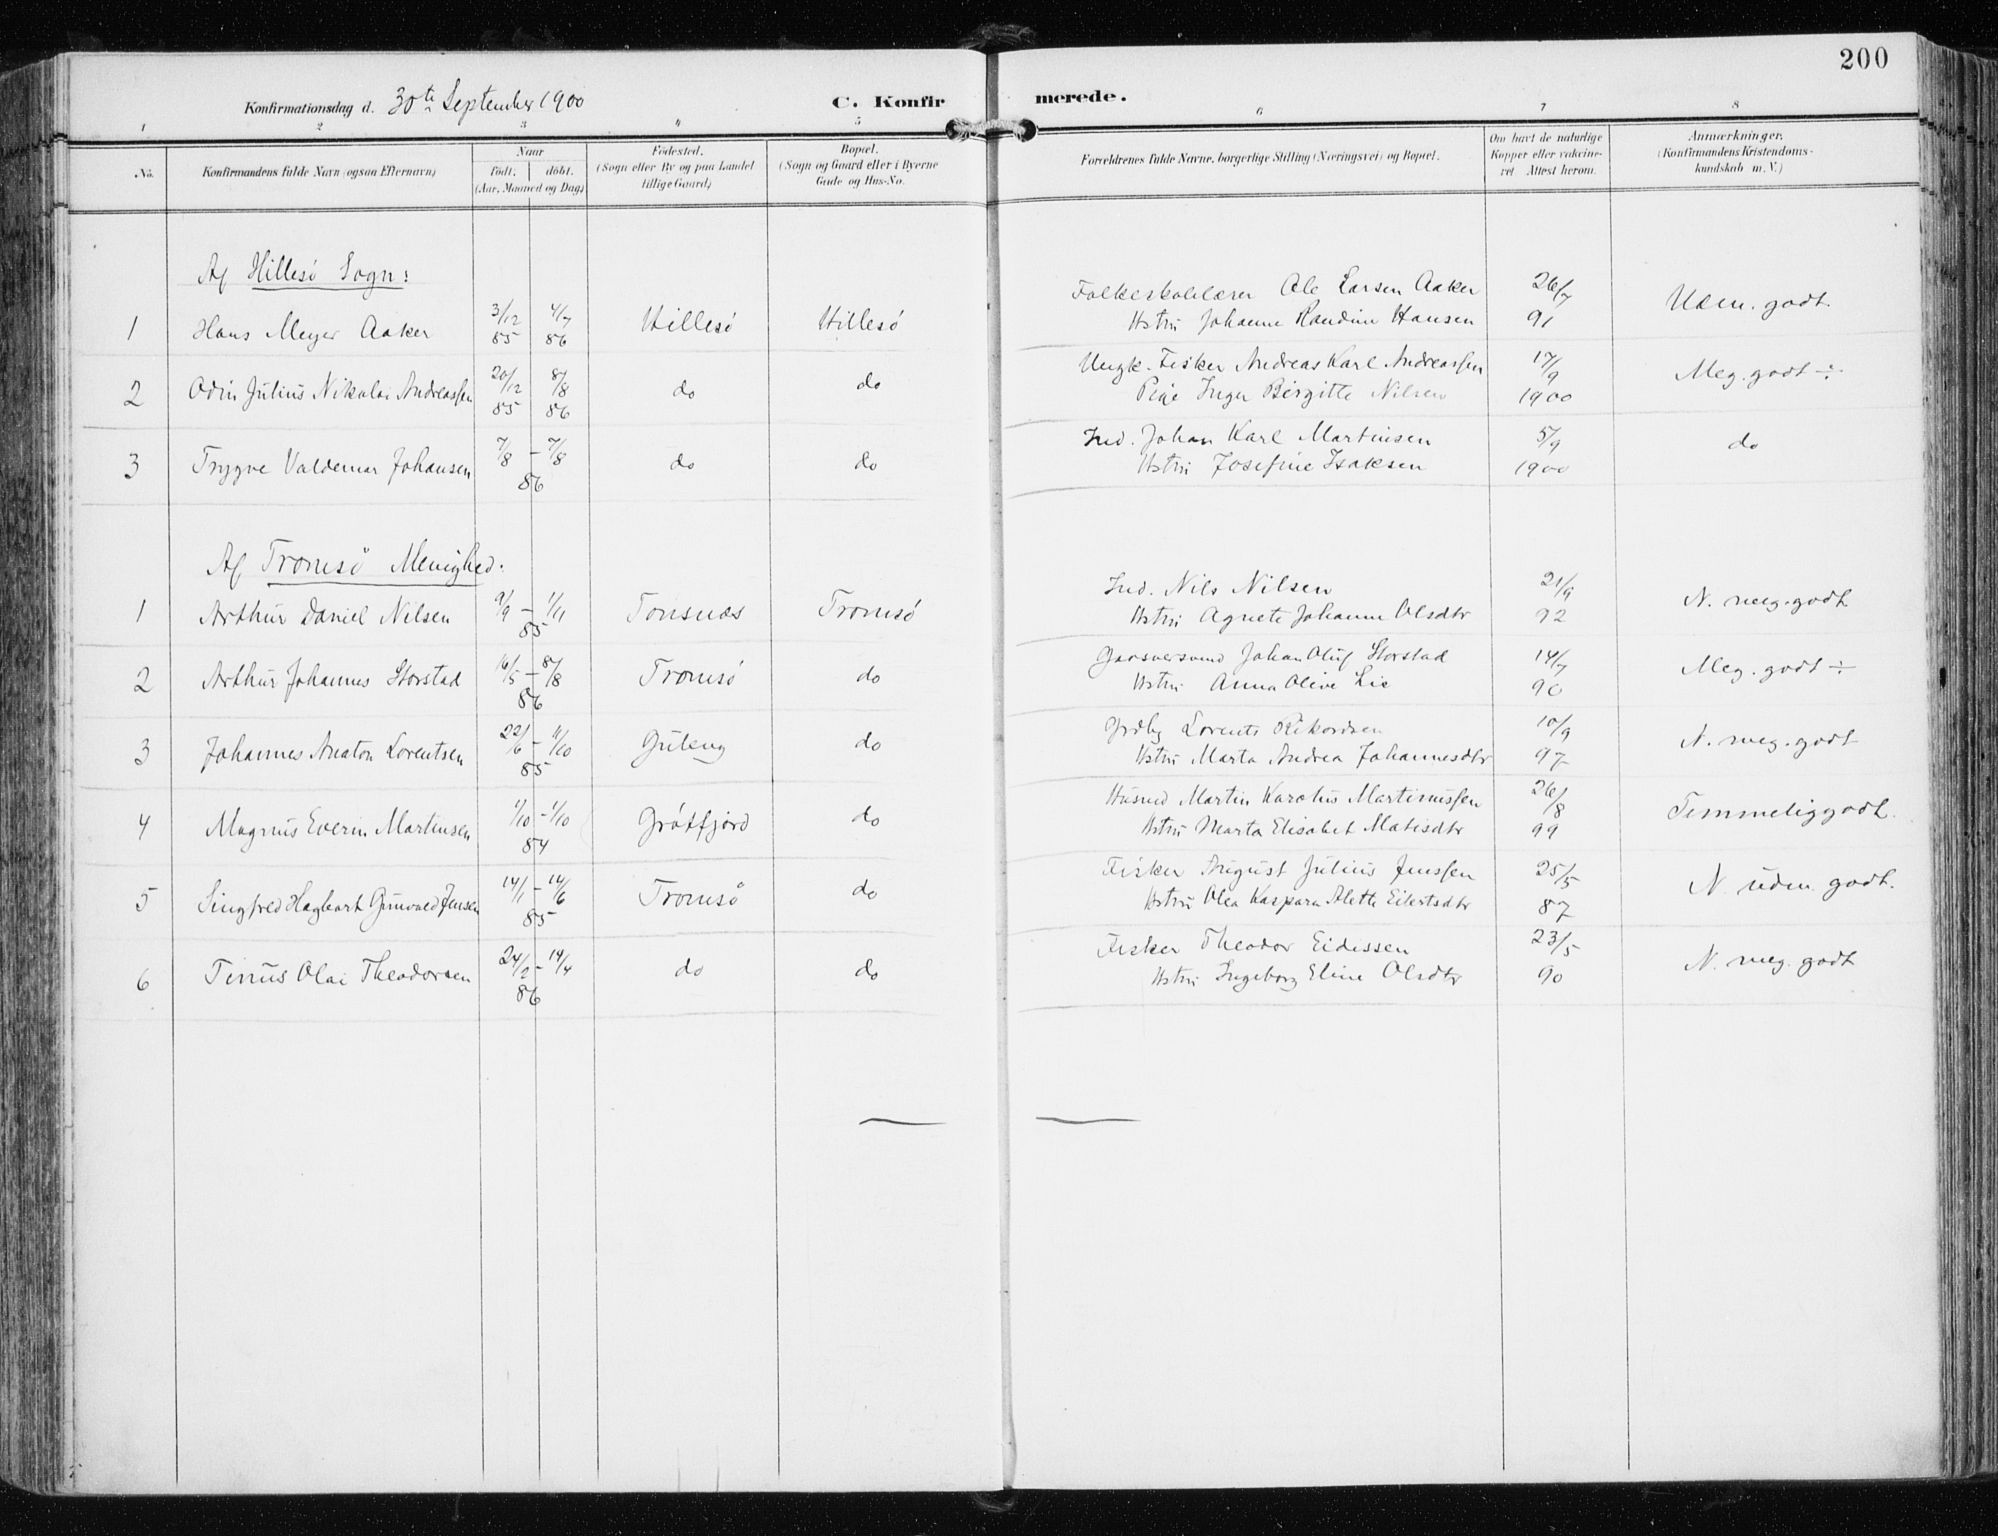 200
Konfirmationsdag d. 30te September 1900
C. Konfir merede.
1 2 3 4 5 6 7 8
No.
Konfirmandens fulde Navn (ogsaa Efternavn)
Naar
födt. döbt.
(Aar, Maaned og Dag)
Födested.
(Sogn eller By og paa Landet
tillige Gaard)
Bopæl.
(Sogn og Gaard eller i Byerne
Gade og Hus-No.
Forældrenes fulde Navne, borgerlige Stilling (Næringsvei) og Bopæl.
Om havt de naturlige
Kopper eller vaccine-
ret Attest herom.
Anmærkninger.
(Konfirmandens Kristendoms-
kundskab m. V.)
Af Hillesö Sogn:
1 Hans Meyer Aaker 3/12 85 4/7 86 Hillesö Hillesö Folkeskolelærer Ole Larsen Aaker 26/7
Hstru Johanne Randine Hansen 91 Udm. godt.
2 Odin Julius Nikolai Andreassen 20/12 85 8/8 86 do do Ungk. Fisker Andreas Karl Andreassen 17/9
Pige Inger Birgitte Nilsen 1900 Meg. godt ÷
3 Trygve Valdemar Johansen 7/8 – 7/8 86 do do Ind. Johan Karl Martinsen 5/9
Hstru Josefine Isaksen 1900 do
Af Tromsö Menighed.
1 Arthur Daniel Nilsen 9/9 – 1/11 85 Tonsnæs Tromsö Ind. Nils Nilsen 21/9
Hstru Agnete Johanne Olsdtr 92 N. meg. godt
2 Arthur Johannes Storstad 16/5 – 8/8 86 Tromsö do Johan Oluf Storstad 14/7
Hstru Anna Olive Lie 90 Meg. godt ÷
3 Johannes Anaton Lorentsen 22/6 – 11/10 85 Guleng do Grdbr Lorents Rikardsen 10/9
Hstru Marta Andrea Johannesdtr 97 N. meg. godt
4 Magnus Everin Martinsen 1/10 – 1/10 84 Grötfjord do Husmd Martin Karelius Martinussen 26/8
Hstru Marta Elisabet Matisdtr 99 Temmelig godt.
5 Singfred Hagbart Gunvald Jensen 14/1 – 14/6 85 Tromsö do Fisker August Julius Jenssen 25/5
Hstru Olea Kaspara Alette Eilertsdtr 87 N. udm. godt.
6 Tinus Olai Theodorsen 24/2 – 14/4 86 do do Fisker Theodor Eidissen 23/5
Hstru Ingeborg Eline Olsdtr 90 N. meg. godt